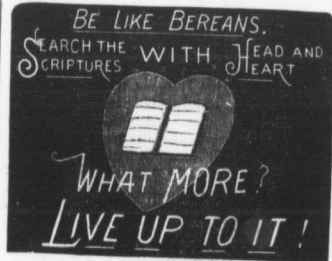 BE LIKE BEREANS.
SEARCH THE SCRIPTURES WITH HEAD AND HEART
WHAT MORE?
LIVE UP TO IT!